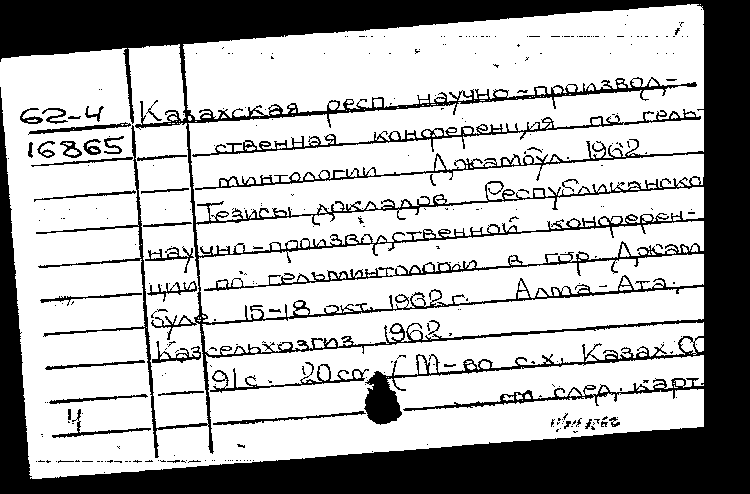 62-4 Казахская респ. научно-производ-
16865 ственная конференция по гельм
минтологии. Джамбул. 1962.
Тезисы докладов Республиканско
научно-производственной конферен-
ции по гельминтологии в гор. Джам
буле. 15-18 окт. 1962 г. Алма-Ата,
Казсельхозгиз, 1962.
91 с. 20 см. (М-во с.х. Казах. СС
4 см. след. карт.